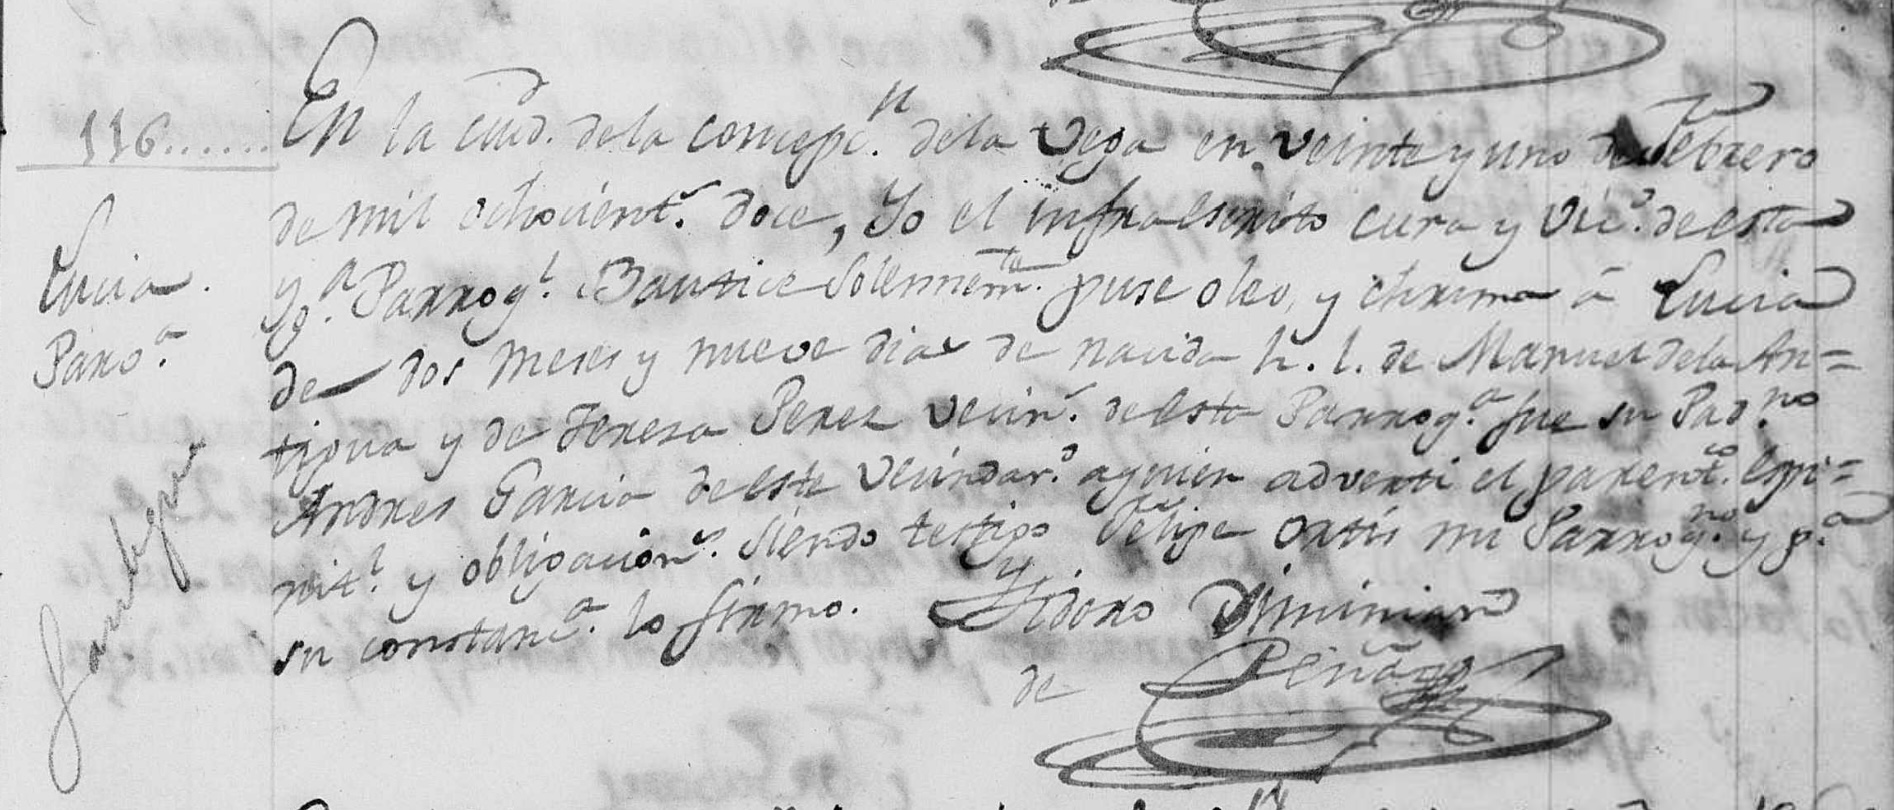 116......
Lucia.
Parro.ª
Jantigua
En la ciud. de la concepc.n de la Vega en veinte y uno de Febrero
de mil ochocient.s doce, Yo el infraescrito cura y Vic.o de esta
Yg.ª Parroq.l Bautice solemnem.te puse oleo, y chrisma â Lucia
de dos meses y nueve dias de nacida h. l. de Manuel de la An=
tigua y de Teresa Perez vecin.s de esta Parroq.ª fue su Pad.no
Andres Garcia de este vecindar.o a quien adverti el parent.co espi=
rit.l y obligacion.s siendo testigo Felipe Ortis mi Parroq.no y p.ª
su constanc.ª lo firmo. Ysidoro Ximinian
de Peña